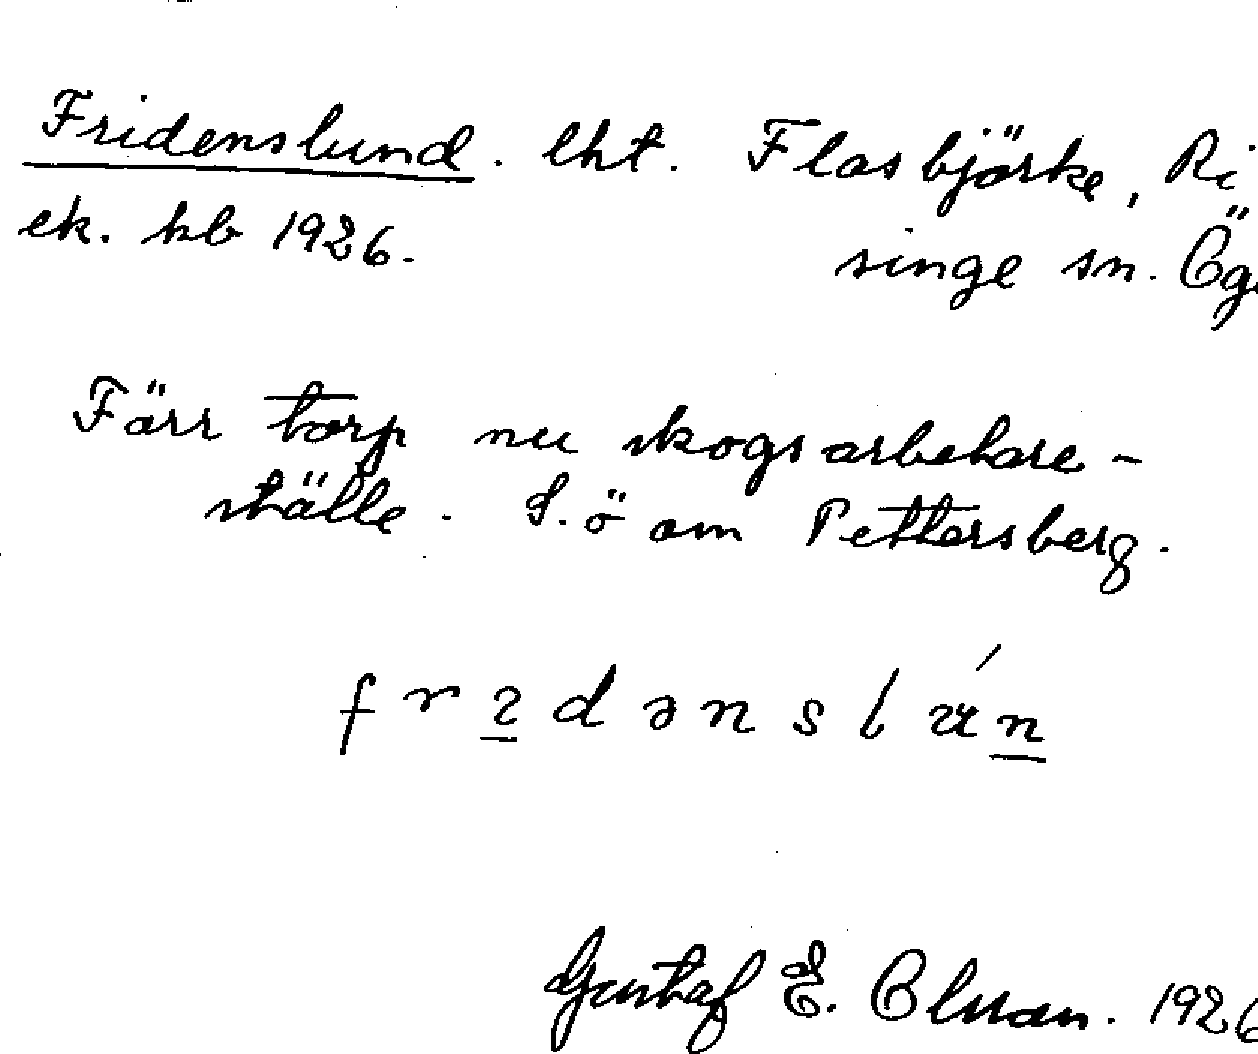 Fridenslund. lht. Flasbjörke, Ri
ek. kb 1926. singe sn. Ög
Förr torp nu skogsarbetare-
ställe. S.ö om Pettersberg.
frıdənslu̍n
Gustaf E. Olsson. 1926